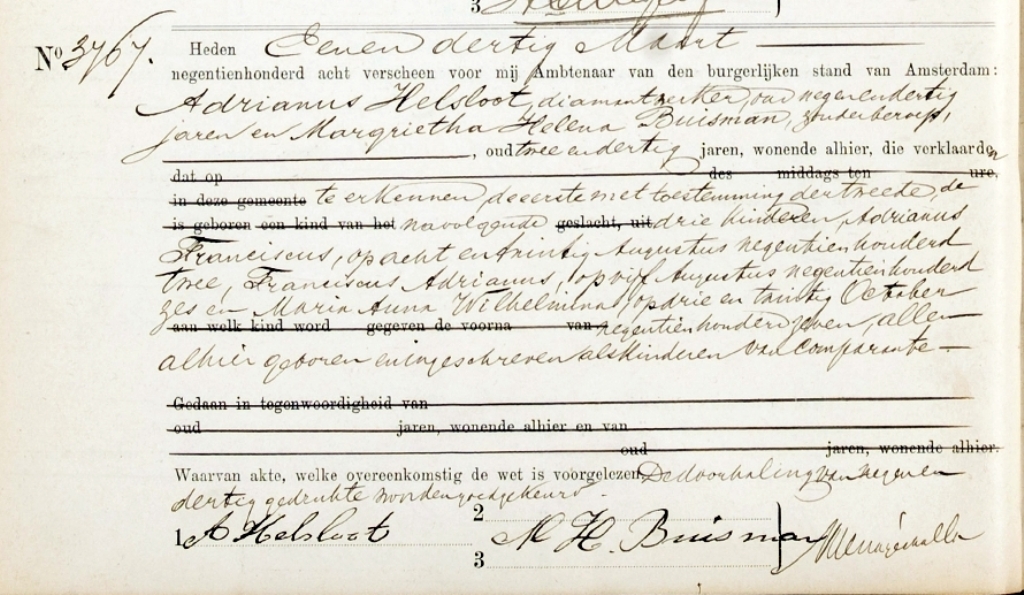 3
Nº 3767. Heden Eenen dertig Maart
negentienhonderd acht verscheen voor mij Ambtenaar van den burgerlijken stand van Amsterdam:
Adrianus Helsloot, diamantwerker, oud negenendertig
jaren en Margrietha Helena Buisman, zonder beroep,
, oud twee en dertig jaren, wonende alhier, die verklaarden
dat op des middags ten ure,
in deze gemeente te erkennen, de eerste met toestemming der tweede, de
is geboren een kind van het navolgende geslacht, uit drie kinderen, Adrianus
Franciscus, op acht en twintig Augustus negentienhonderd
twee, Franciscus Adrianus, op vijf Augustus negentienhonderd
zes en Maria Anna Wilhelmina, op drie en twintig October
aan welk kind word gegeven de voorna van negentienhonderd zeven, allen
alhier geboren en ingeschreven als kinderen van comparante
Gedaan in tegenwoordigheid van
oud jaren, wonende alhier en van
oud jaren, wonende alhier.
Waarvan akte, welke overeenkomstig de wet is voorgelezen. De doorhaling van negenen
dertig gedrukte woorden goedgekeurd.
1 A Helsloot 2 M. H. Buisman
3